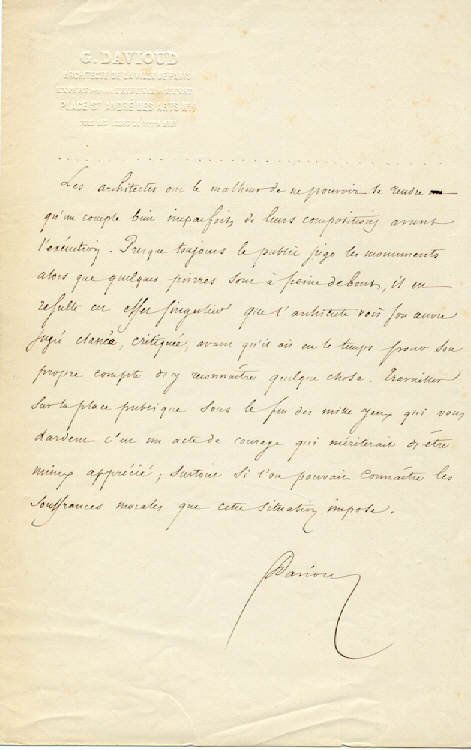 G. DAVIOUD
ARCHITECTE DE LA VILLE DE PARIS
PLACE ST ANDRÉ DES ARTS
Les architectes on le malheur de ne pouvoir se rendre
qu'un compte bien imparfait de leurs compositions avant
l'exécution. Presque toujours le public juge les monuments
alors que quelques pierres sont à peine debout, il en
résulte cet effet singulier que l'architecte voit son œuvre
jugée, critiquée, avant qu'il ait eu le temps pour son
propre compte d'y reconnaître quelque chose. Travailler
sur la place publique sous le feu des mille yeux qui vous
dardent c'est un acte de courage qui mériterait d'être
mieux apprécié; surtout si l'on pouvait connaître les
souffrances morales que cette situation impose.
Davioud